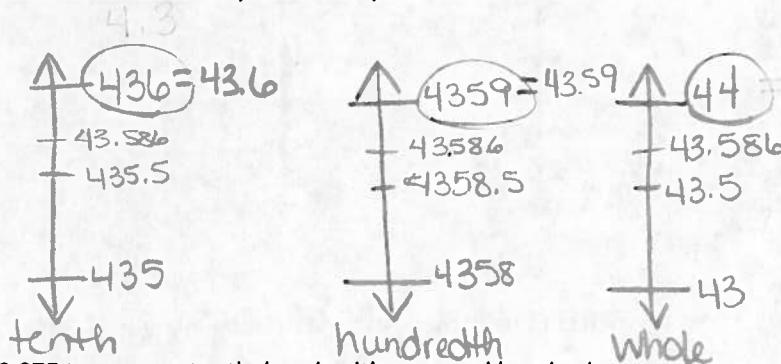 4.3
436 = 43.6
43.586
435.5
435
tenth
4359 = 43.59
43.586
4358.5
4358
hundredth
44
43.586
43.5
43
whole